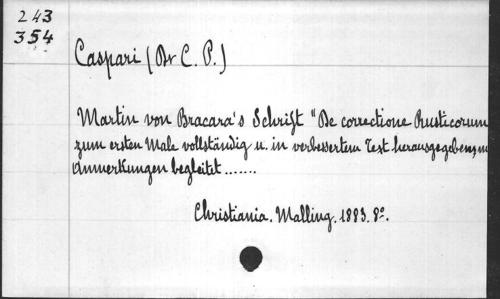 243
354
Caspari (Dr C. P.)
Martin von Bracara's Schrift "De correctione Rusticorum
zum ersten Male vollständig u. in verbessertem Text herausgegeben, m
Anmerkungen begleitet .......
Christiania. Malling. 1883. 8º.